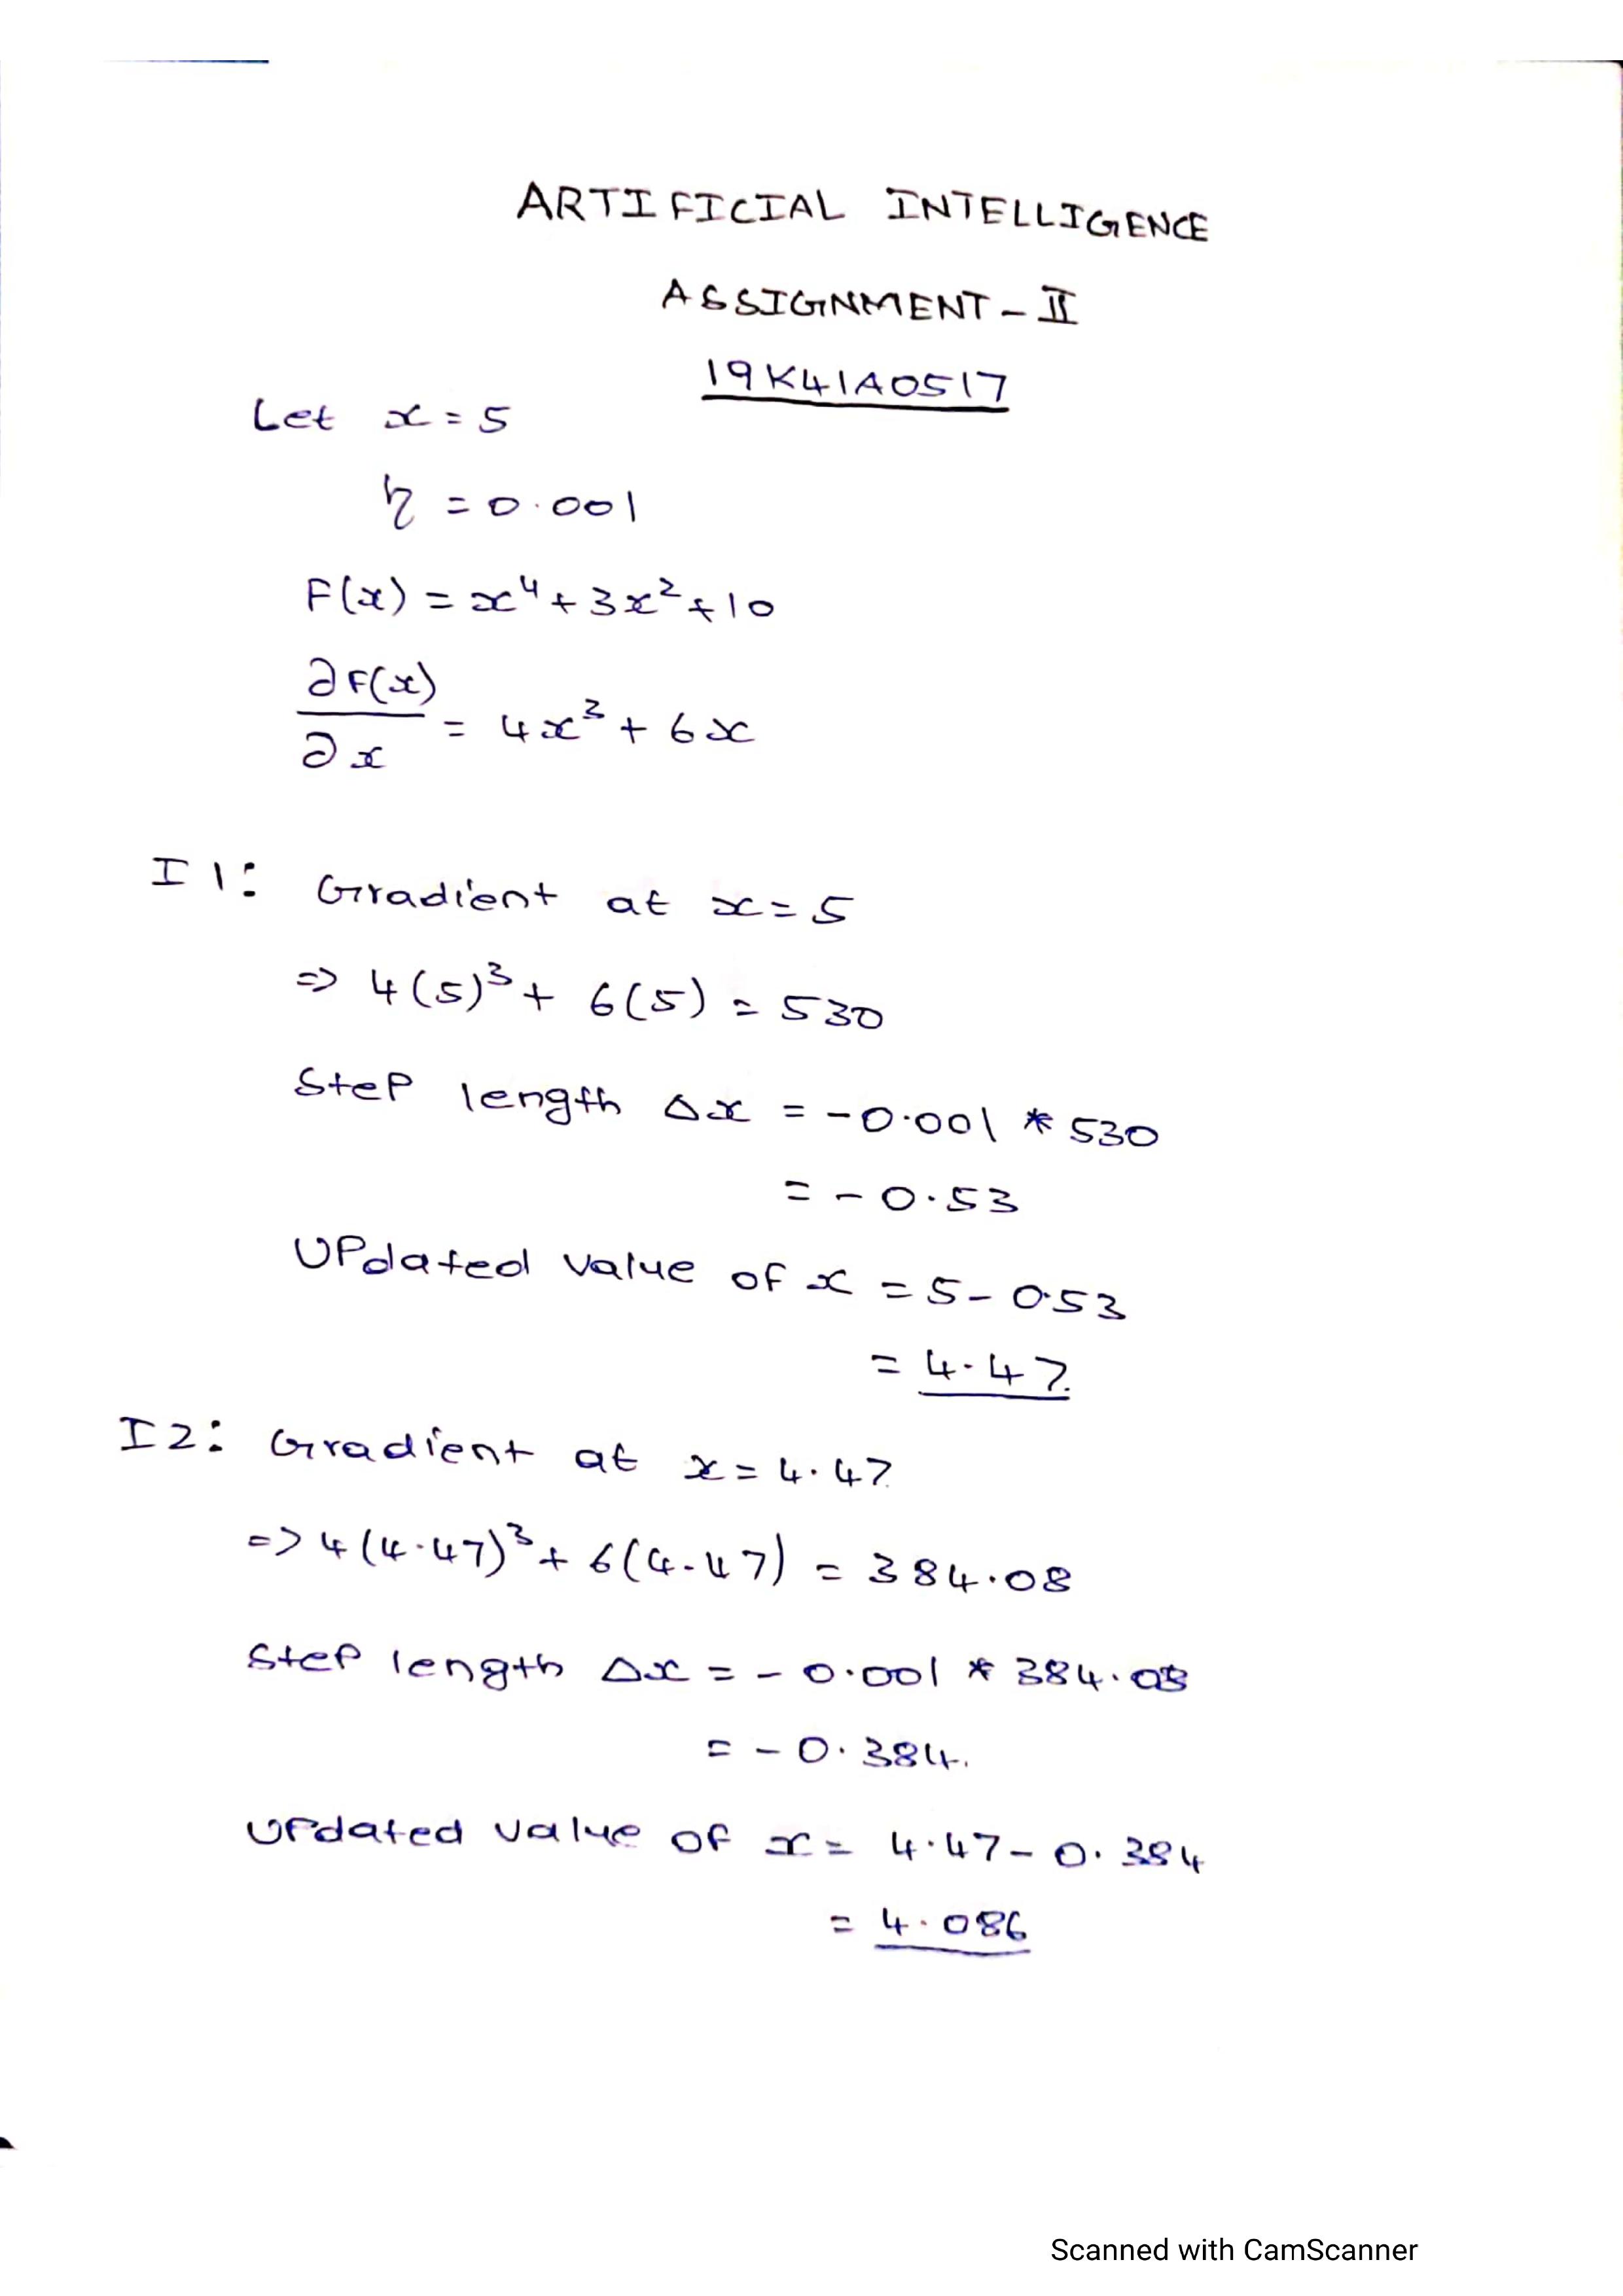 ARTIFICIAL INTELLIGENCE
ASSIGNMENT - II
19K41A0517
Let x = 5
η = 0.001
F(x) = x⁴ + 3x² + 10
∂F(x)/∂x = 4x³ + 6x
I1: Gradient at x = 5
=> 4(5)³ + 6(5) = 530
Step length Δx = -0.001 * 530
= -0.53
Updated value of x = 5 - 0.53
= 4.47
I2: Gradient at x = 4.47
=> 4(4.47)³ + 6(4.47) = 384.08
Step length Δx = -0.001 * 384.08
= -0.384.
Updated value of x = 4.47 - 0.384
= 4.086
Scanned with CamScanner